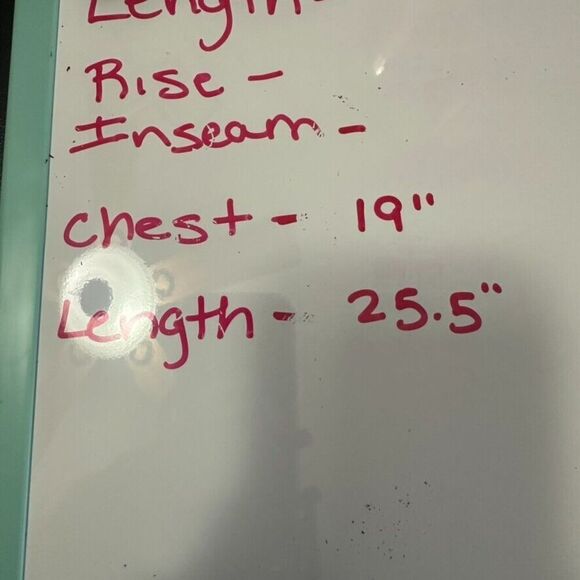 Length -
Rise -
Inseam -
Chest - 19"
Length - 25.5"